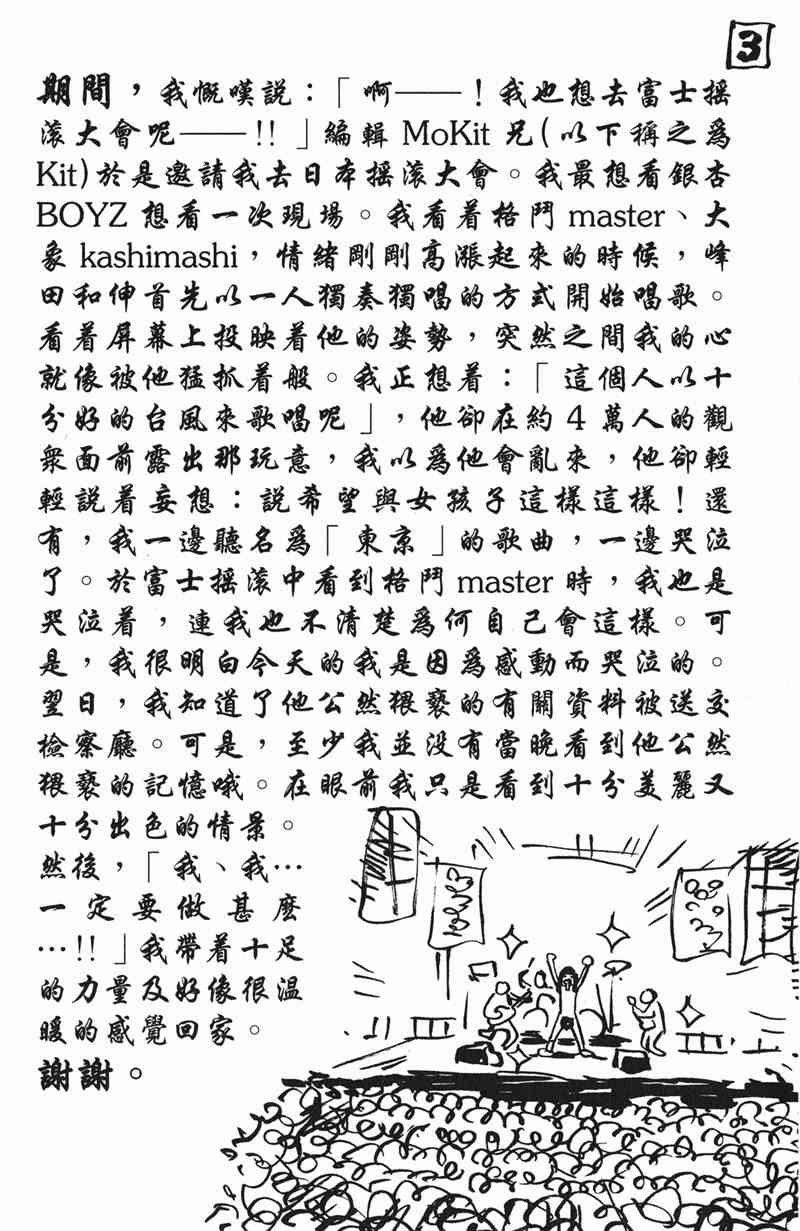 3
期間，我慨嘆說：「啊——！我也想去富士搖
滚大會呢——!!」編輯 MoKit 兄(以下稱之爲
Kit)於是邀請我去日本搖滚大會。我最想看銀杏
BOYZ 想看一次現場。我看着格鬥 master、大
象 kashimashi，情緒剛剛高漲起來的時候，峰
田和伸首先以一人獨奏獨唱的方式開始唱歌。
看着屏幕上投映着他的姿勢，突然之間我的心
就像被他猛抓着般。我正想着：「這個人以十
分好的台風來歌唱呢」，他卻在約 4 萬人的觀
衆面前露出那玩意，我以爲他會亂來，他卻輕
輕說着妄想：說希望與女孩子這樣這樣！還
有，我一邊聽名爲「東京」的歌曲，一邊哭泣
了。於富士搖滚中看到格鬥 master 時，我也是
哭泣着，連我也不清楚爲何自己會這樣。可
是，我很明白今天的我是因爲感動而哭泣的。
翌日，我知道了他公然猥褻的有關資料被送交
檢察廳。可是，至少我並没有當晚看到他公然
猥褻的記憶哦。在眼前我只是看到十分美麗又
十分出色的情景。
然後，「我、我…
一定要做甚麽
…!!」我帶着十足
的力量及好像很温
暖的感覺回家。
謝謝。